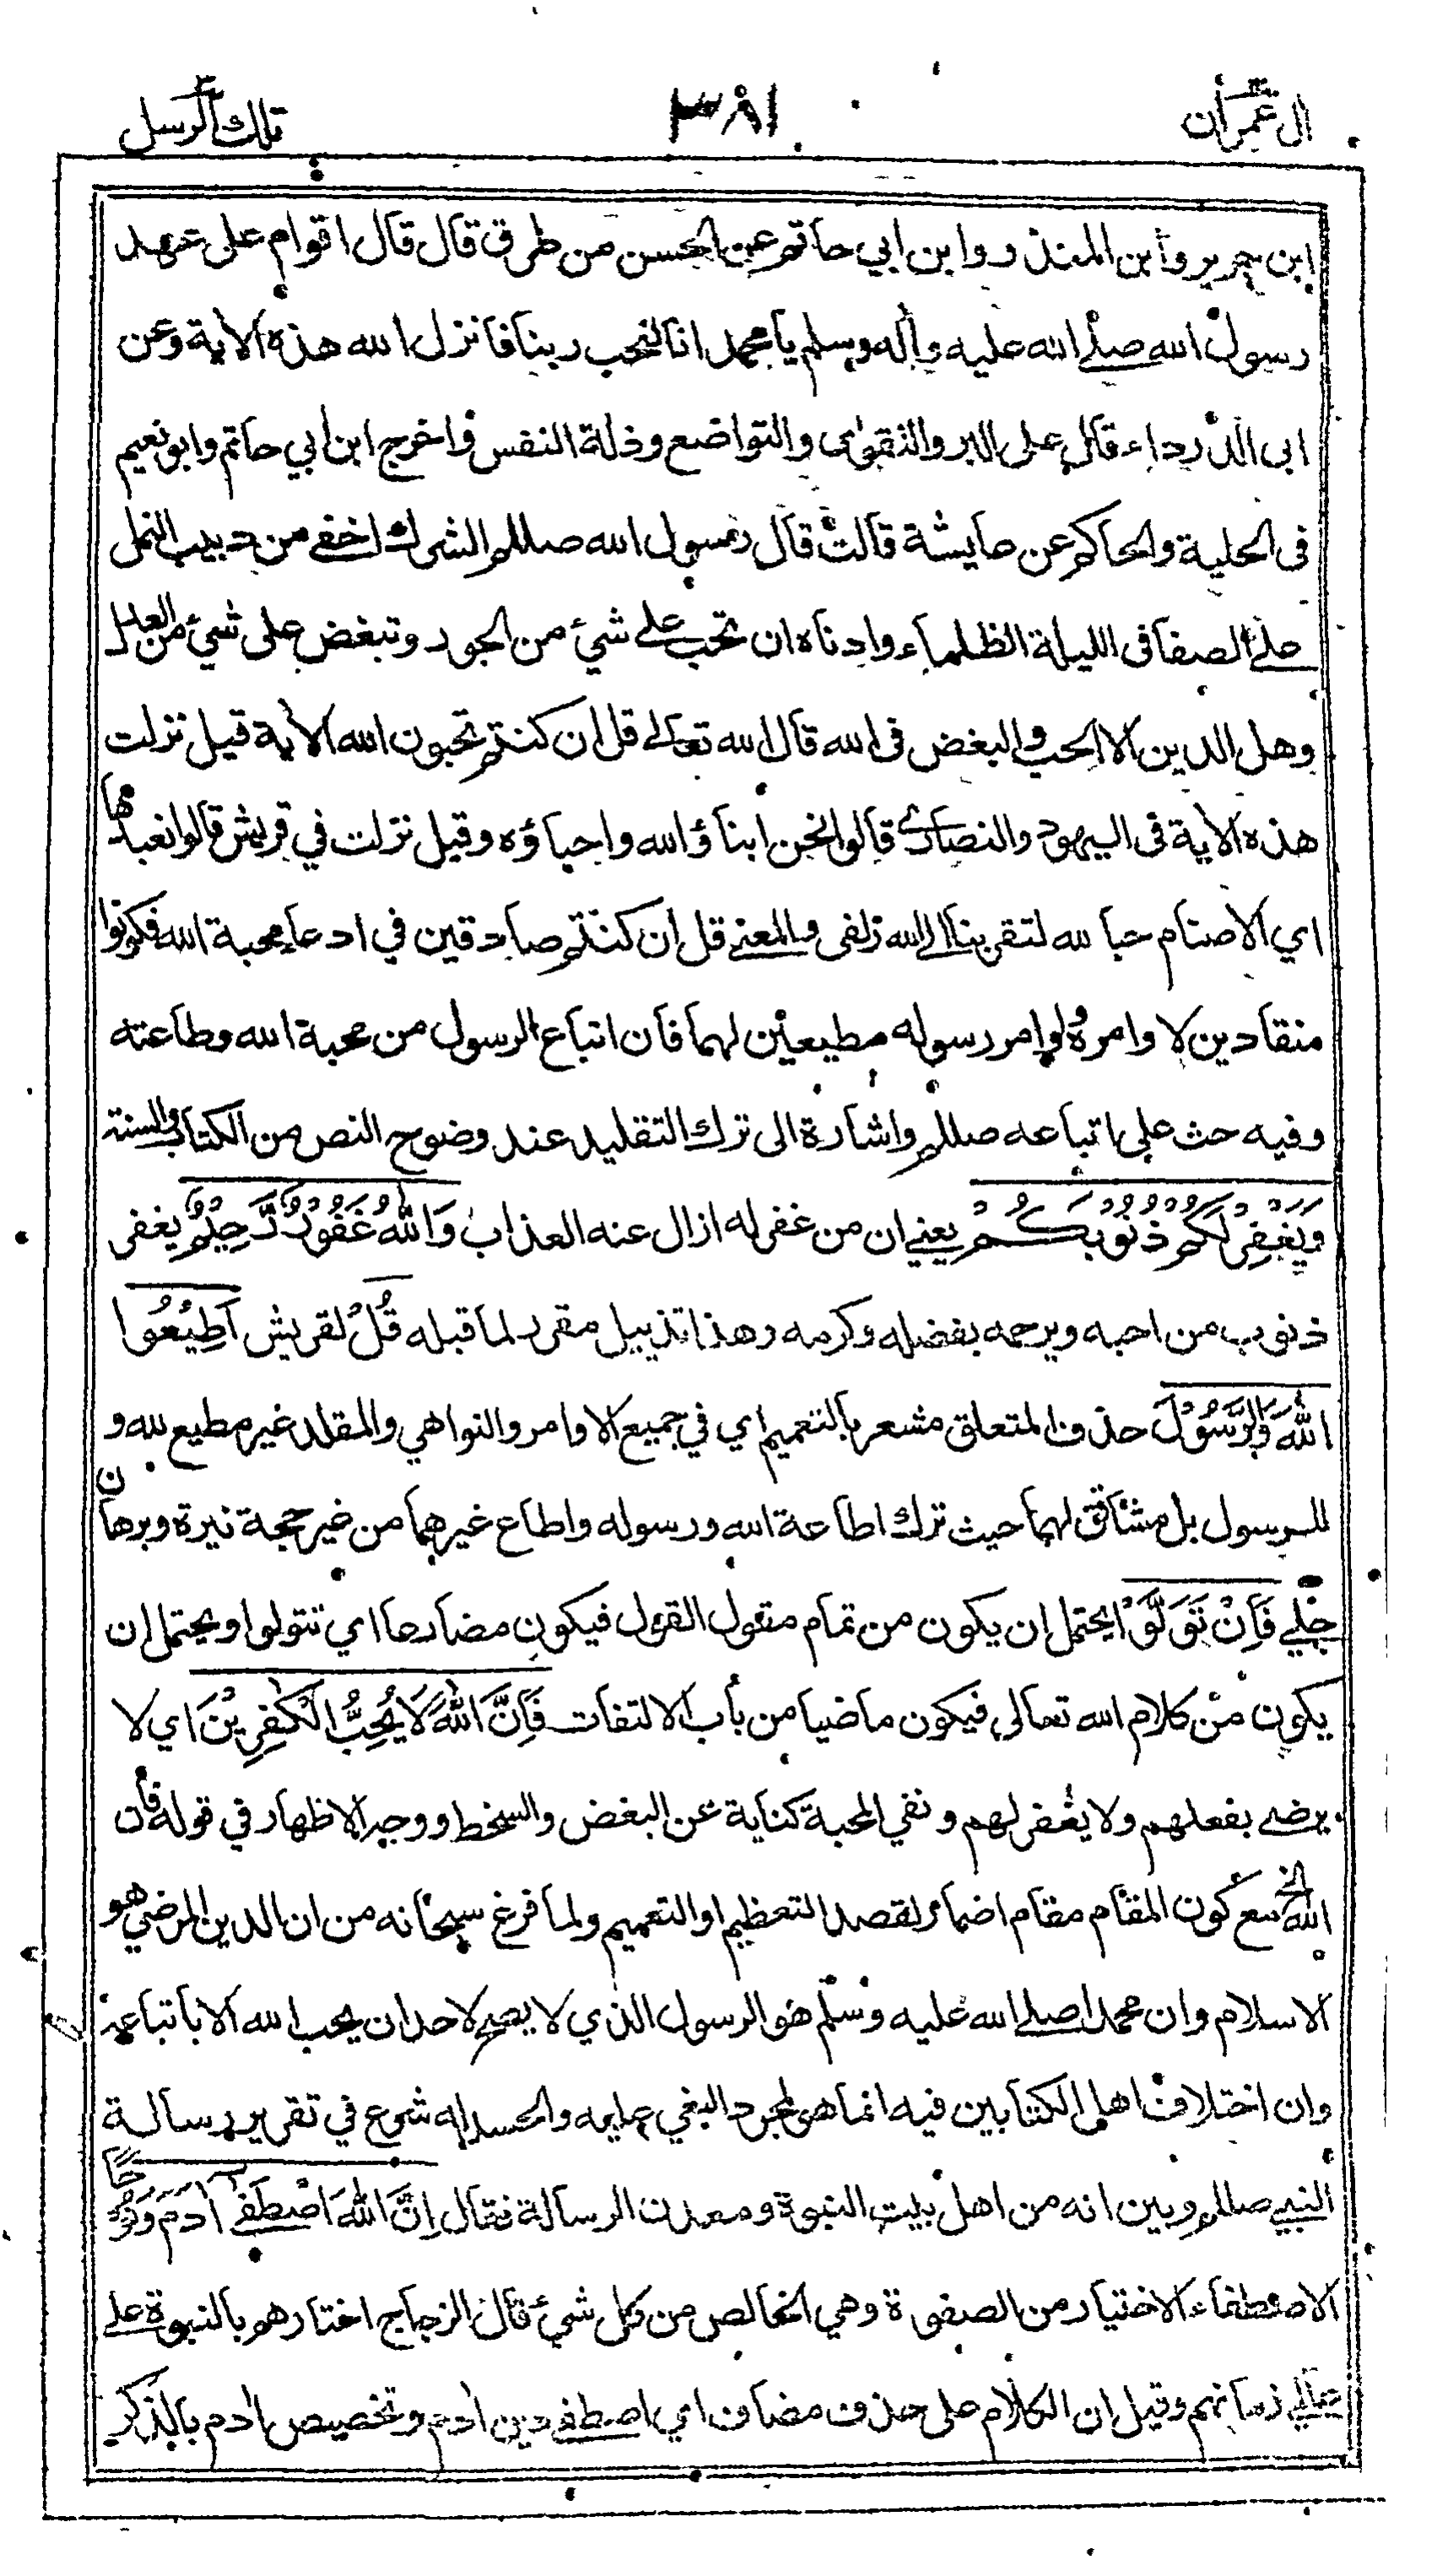 ال عمران
٣٨١
تلك الرسل
ابن جرير وابن المنذر وابن ابي حاتم عن الحسن من طرق قال قال اقوام على عهد
رسول الله صلى الله عليه واله وسلم يا محمد انا لنحب ربنا فانزل الله هذه الاية وعن
ابى الدرداء قال على البر والتقوى والتواضع وذلة النفس واخرج ابن ابي حاتم وابو نعيم
فى الحلية والحاكم عن عايشة قالت قال رسول الله صللم الشرك اخفى من دبيب النمل
على الصفا فى الليلة الظلماء وادناه ان تحب على شيء من الجور وتبغض على شيء من العدل
وهل الدين الا الحب والبغض فى الله قال الله تعالى قل ان كنتم تحبون الله الاية قيل نزلت
هذه الاية فى اليهود والنصارى قالوا نحن ابناؤ الله واحباؤه وقيل نزلت في قريش قالوا نعبدها
اي الاصنام حبا لله لتقربنا الى الله زلفى والمعنى قل ان كنتم صادقين في ادعاء محبة الله فكونوا
منقادين لاوامره ولاوامر رسوله مطيعين لهما فان اتباع الرسول من محبة الله وطاعته
وفيه حث على اتباعه صللم واشارة الى ترك التقليد عند وضوح النص من الكتاب والسنة
وَيَغْفِرْ لَكُمْ ذُنُوبَكُمْ يعني ان من غفر له ازال عنه العذاب وَاللّٰهُ غَفُوْرٌ رَّحِيْمٌ يغفر
ذنوب من احبه ويرحمه بفضله وكرمه وهذا تذييل مقرر لما قبله قُلْ لقريش اَطِيْعُوا
اللّٰهَ وَالرَّسُوْلَ حذف المتعلق مشعر بالتعميم اي في جميع الاوامر والنواهي والمقلد غير مطيع لله و
للرسول بل مشاقق لهما حيث ترك اطاعة الله ورسوله واطاع غيرهما من غير حجة نيرة وبرهان
جلي فَاِنْ تَوَلَّوْا يحتمل ان يكون من تمام مقول القول فيكون مضارعا اي تتولوا ويحتمل ان
يكون من كلام الله تعالى فيكون ماضيا من باب الالتفات فَاِنَّ اللّٰهَ لَا يُحِبُّ الْكٰفِرِيْنَ اي لا
يرضى بفعلهم ولا يغفر لهم ونفي المحبة كناية عن البغض والسخط ووجه الاظهار في قوله فان
الله الخ مع كون المقام مقام اضمار لقصد التعظيم او التعميم ولما فرغ سبحانه من ان الدين المرضي هو
الاسلام وان محمدا صلى الله عليه وسلم هو الرسول الذي لا يصح لاحد ان يحب الله الا باتباعه
وان اختلاف اهل الكتابين فيه انما هى لمجرد البغي عليه والحسد له شرع في تقرير رسالة
النبي صللم وبين انه من اهل بيت النبوة ومعدن الرسالة فقال اِنَّ اللّٰهَ اصْطَفٰى اٰدَمَ وَنُوْحًا
الاصطفاء الاختيار من الصفوة وهي الخالص من كل شيء قال الزجاج اختارهم بالنبوة على
عالمي زمانهم وقيل ان الكلام على حذف مضاف اي اصطفى دين ادم وتخصيص ادم بالذكر